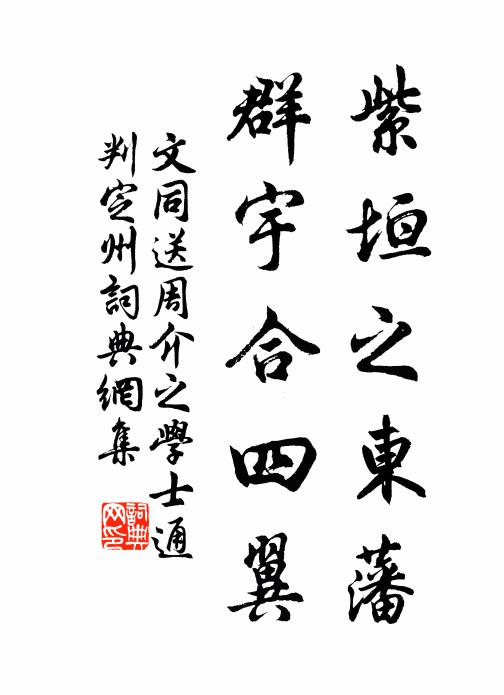 紫垣之東藩
群宇合四翼
文同送周介之學士通
判定州詞典網集
詞典网印